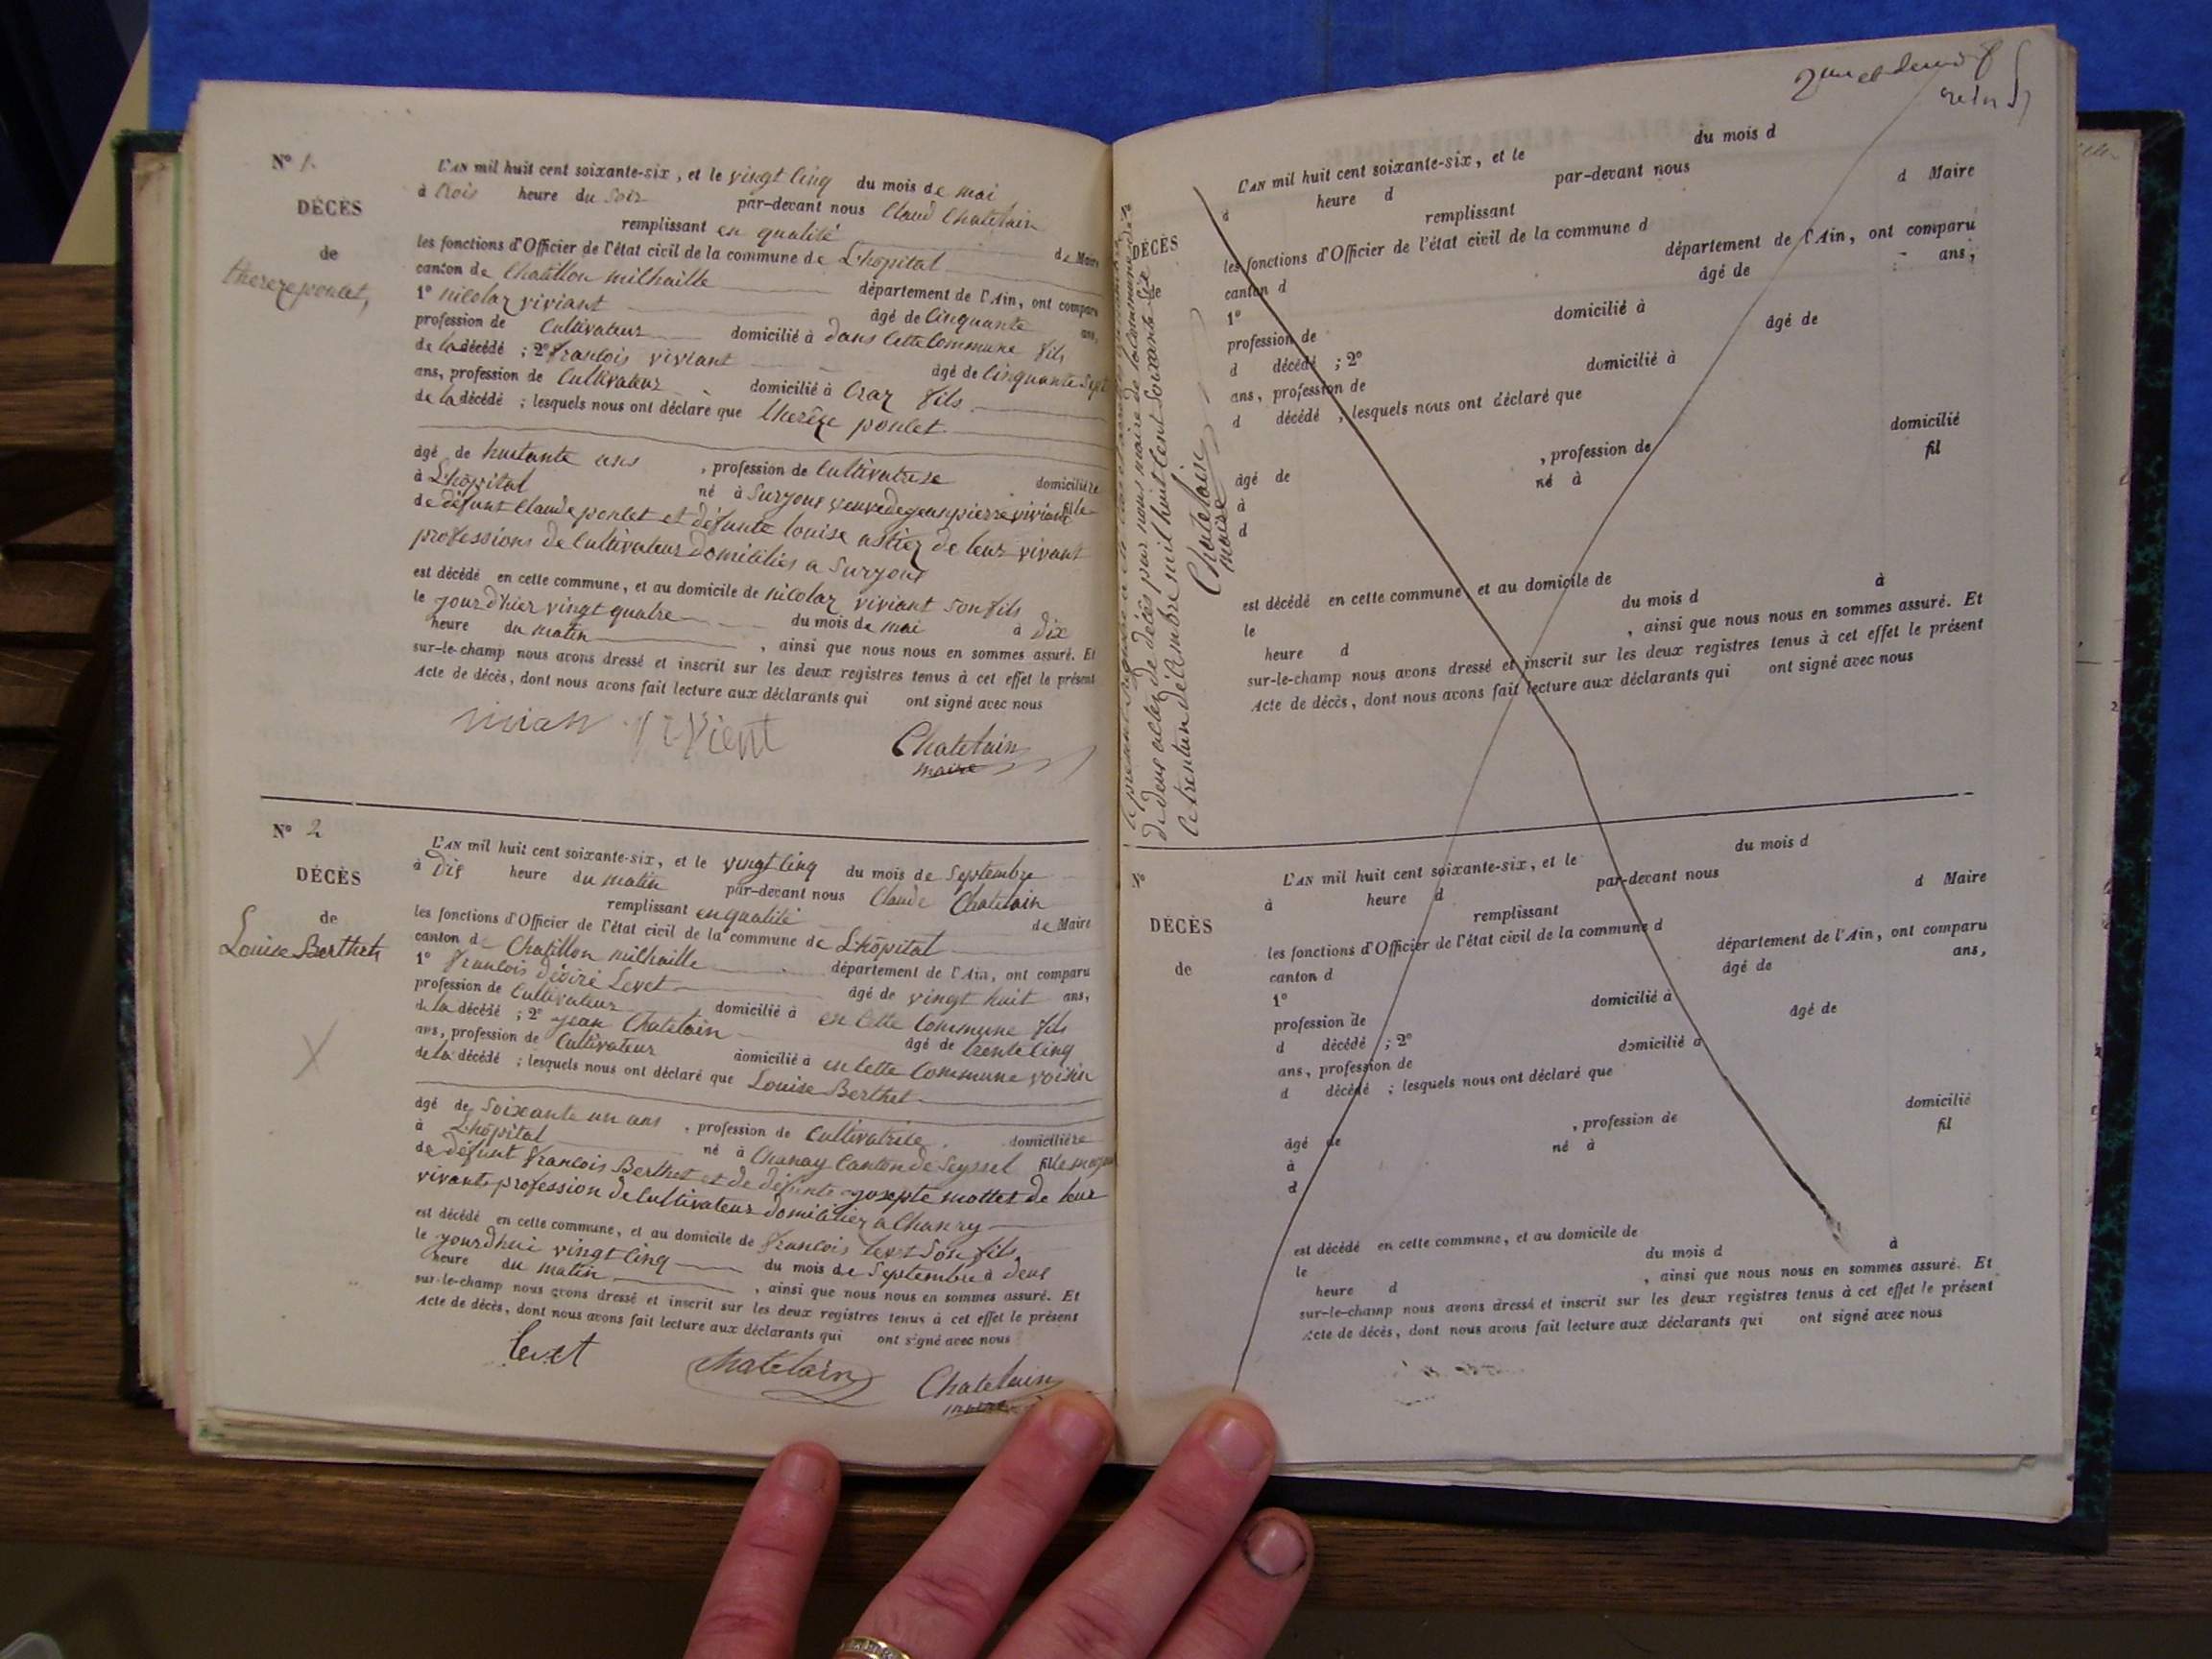 N° 1.
DÉCÈS
de
thereze poncet,
L'AN mil huit cent soixante-six, et le vingt cinq du mois de mai
à trois heure du soir par-devant nous Claud Chatelain
remplissant en qualité de Maire
les fonctions d'Officier de l'état civil de la commune de L'hôpital
canton de Chatillon milhaille département de l'Ain, ont comparu
1° nicolaz viviant âgé de Cinquante ans,
profession de Cultivateur domicilié à dans cette Commune fils
de la décédé ; 2° francois viviant âgé de Cinquante sept
ans, profession de Cultivateur domicilié à Craz fils
de la décédé ; lesquels nous ont déclaré que therèze poncet
âgé de huitante ans , profession de Cultivatrise domicilière
à L'hôpital né à Surjoux veuve de jean pierre viviant fille
de défunt Claude poncet et défunte louise astiez de leur vivant
professions de Cultivateur domiciliés a Surjoux
est décédé en cette commune, et au domicile de nicolaz viviant son fils
le jourd'hier vingt quatre du mois de mai à dix
heure du matin , ainsi que nous nous en sommes assuré. Et
sur-le-champ nous avons dressé et inscrit sur les deux registres tenus à cet effet le présent
Acte de décès, dont nous avons fait lecture aux déclarants qui ont signé avec nous
Chatelain
maire
N° 2
DÉCÈS
de
Louise Berthet
L'AN mil huit cent soixante-six, et le vingt cinq du mois de Septembre
à Dix heure du matin par-devant nous Claude Chatelain
remplissant en qualité de Maire
les fonctions d'Officier de l'état civil de la commune de L'hôpital
canton de Chatillon milhaille département de l'Ain, ont comparu
1° francois désiré Levet âgé de vingt huit ans,
profession de Cultivateur domicilié à en cette Commune fils
de la décédé ; 2° jean Chatelain âgé de trente cinq
ans, profession de Cultivateur domicilié à en cette Commune voisin
de la décédé ; lesquels nous ont déclaré que Louise Berthet
âgé de Soixante un ans , profession de Cultivatrice domicilière
à L'hôpital né à Chanay Canton de Seyssel fille
de défunt francois Berthet et de défunte josepte mottet de leur
vivants profession de Cultivateur domiciliez a Chanay
est décédé en cette commune, et au domicile de francois levet Son fils
le jourd'hui vingt cinq du mois de Septembre à deux
heure du matin , ainsi que nous nous en sommes assuré. Et
sur-le-champ nous avons dressé et inscrit sur les deux registres tenus à cet effet le présent
Acte de décès, dont nous avons fait lecture aux déclarants qui ont signé avec nous
levet Chatelain Chatelain
maire
de deux actes de décès par nous maire de la commune de
Ce trente un décembre mil huit cent soixante Six
Chatelain
maire
DÉCÈS
de
L'AN mil huit cent soixante-six, et le du mois d
à heure d par-devant nous
remplissant d Maire
les fonctions d'Officier de l'état civil de la commune d
canton d département de l'Ain, ont comparu
1° âgé de ans,
profession de domicilié à
d décédé ; 2° âgé de
ans, profession de domicilié à
d décédé , lesquels nous ont déclaré que
âgé de , profession de domicilié
à né à fil
d
est décédé en cette commune, et au domicile de
le du mois d à
heure d , ainsi que nous nous en sommes assuré. Et
sur-le-champ nous avons dressé et inscrit sur les deux registres tenus à cet effet le présent
Acte de décès, dont nous avons fait lecture aux déclarants qui ont signé avec nous
N°
DÉCÈS
de
L'AN mil huit cent soixante-six, et le du mois d
à heure d par-devant nous
remplissant d Maire
les fonctions d'Officier de l'état civil de la commune d
canton d département de l'Ain, ont comparu
1° âgé de ans,
profession de domicilié à
d décédé ; 2° âgé de
ans, profession de domicilié à
d décédé ; lesquels nous ont déclaré que
âgé de , profession de domicilié
à né à fil
d
est décédé en cette commune, et au domicile de
le du mois d à
heure d , ainsi que nous nous en sommes assuré. Et
sur-le-champ nous avons dressé et inscrit sur les deux registres tenus à cet effet le présent
Acte de décès, dont nous avons fait lecture aux déclarants qui ont signé avec nous